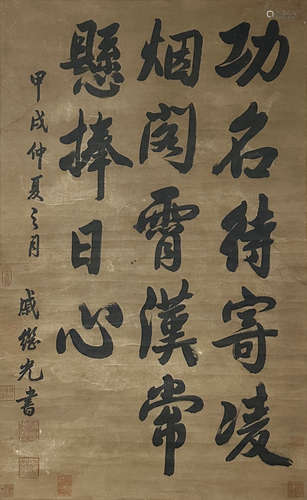 功名待寄凌
烟阁霄漢常
懸捧日心
甲戌仲夏之月
戚繼光書